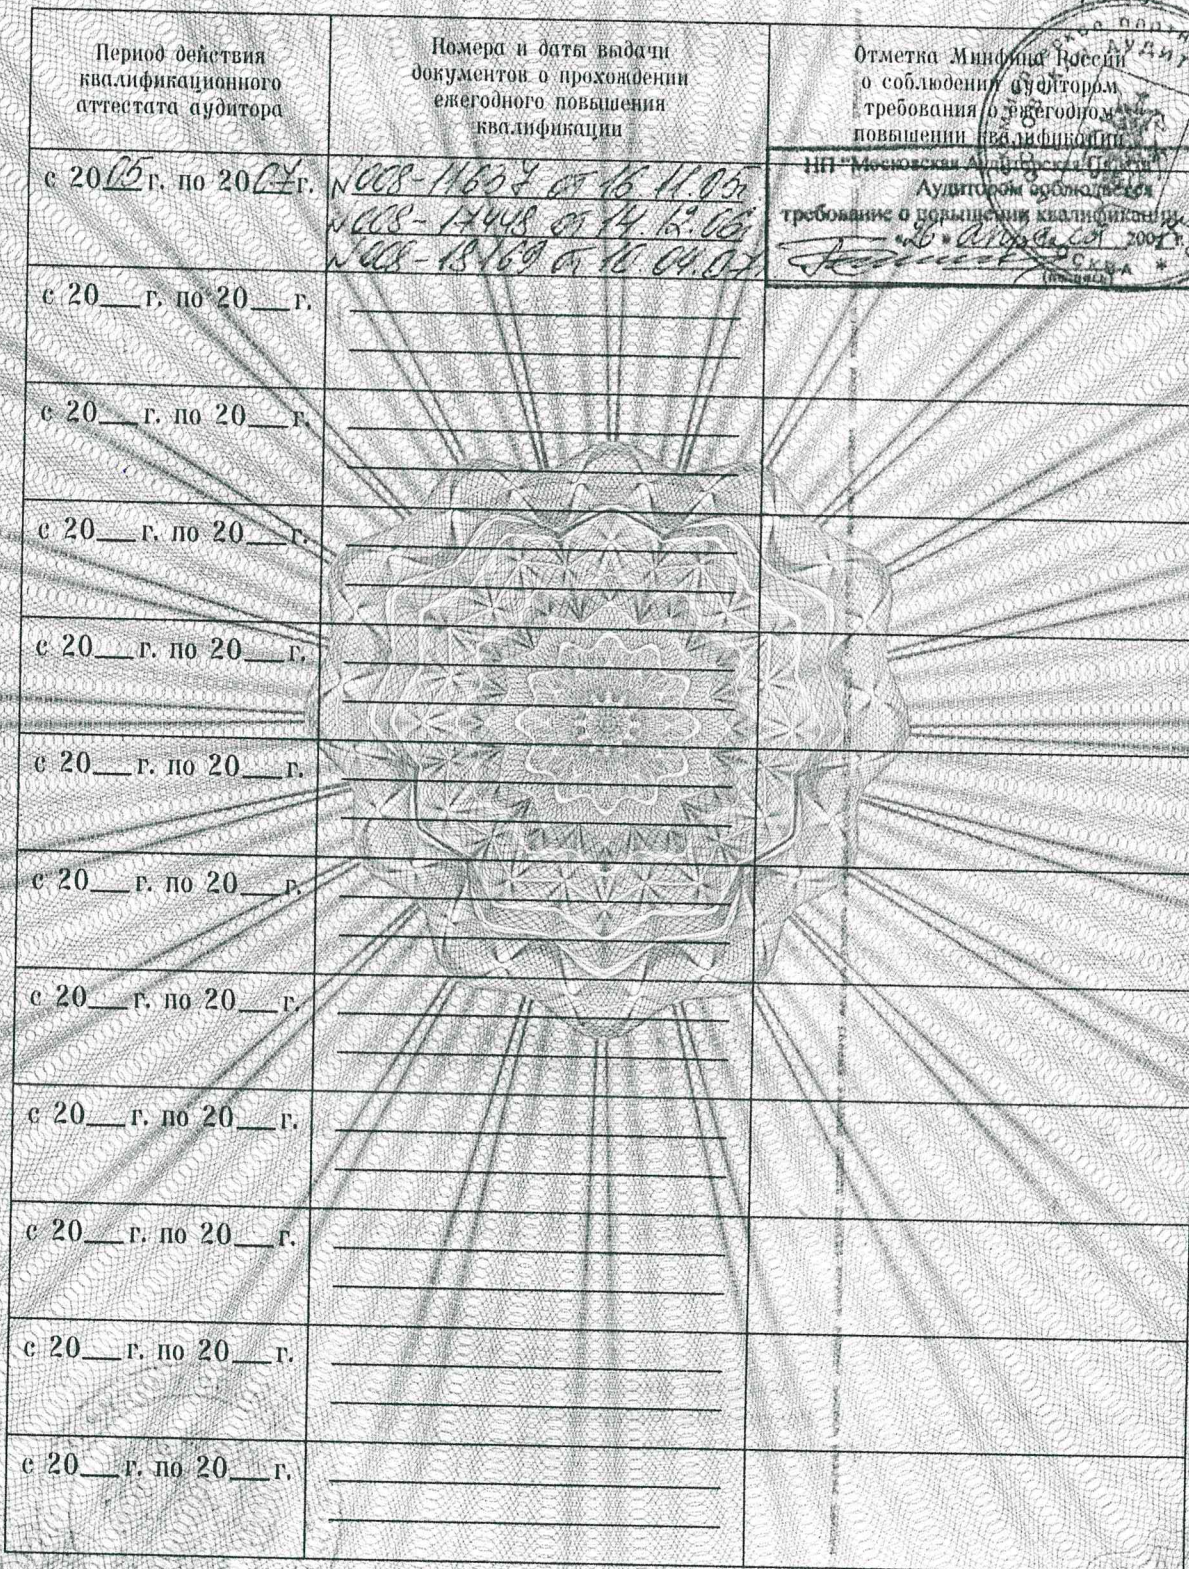 Период действия
квалификационного
аттестата аудитора
Номера и даты выдачи
документов о прохождении
ежегодного повышения
квалификации
Отметка Минфина России
о соблюдении аудитором
требования о ежегодном
повышении квалификации
с 2005 г. по 2007 г.
№008-11637 от 16.11.05г
№008-17448 от 14.12.06г
№008-18169 от 10.04.07
НП "Московская Аудиторская Палата"
Аудитором соблюдается
требование о повышении квалификации
«26» апреля 2007 г.
(подпись)
с 20__г. по 20__г.
с 20__г. по 20__г.
с 20__г. по 20__г.
с 20__г. по 20__г.
с 20__г. по 20__г.
с 20__г. по 20__г.
с 20__г. по 20__г.
с 20__г. по 20__г.
с 20__г. по 20__г.
с 20__г. по 20__г.
с 20__г. по 20__г.